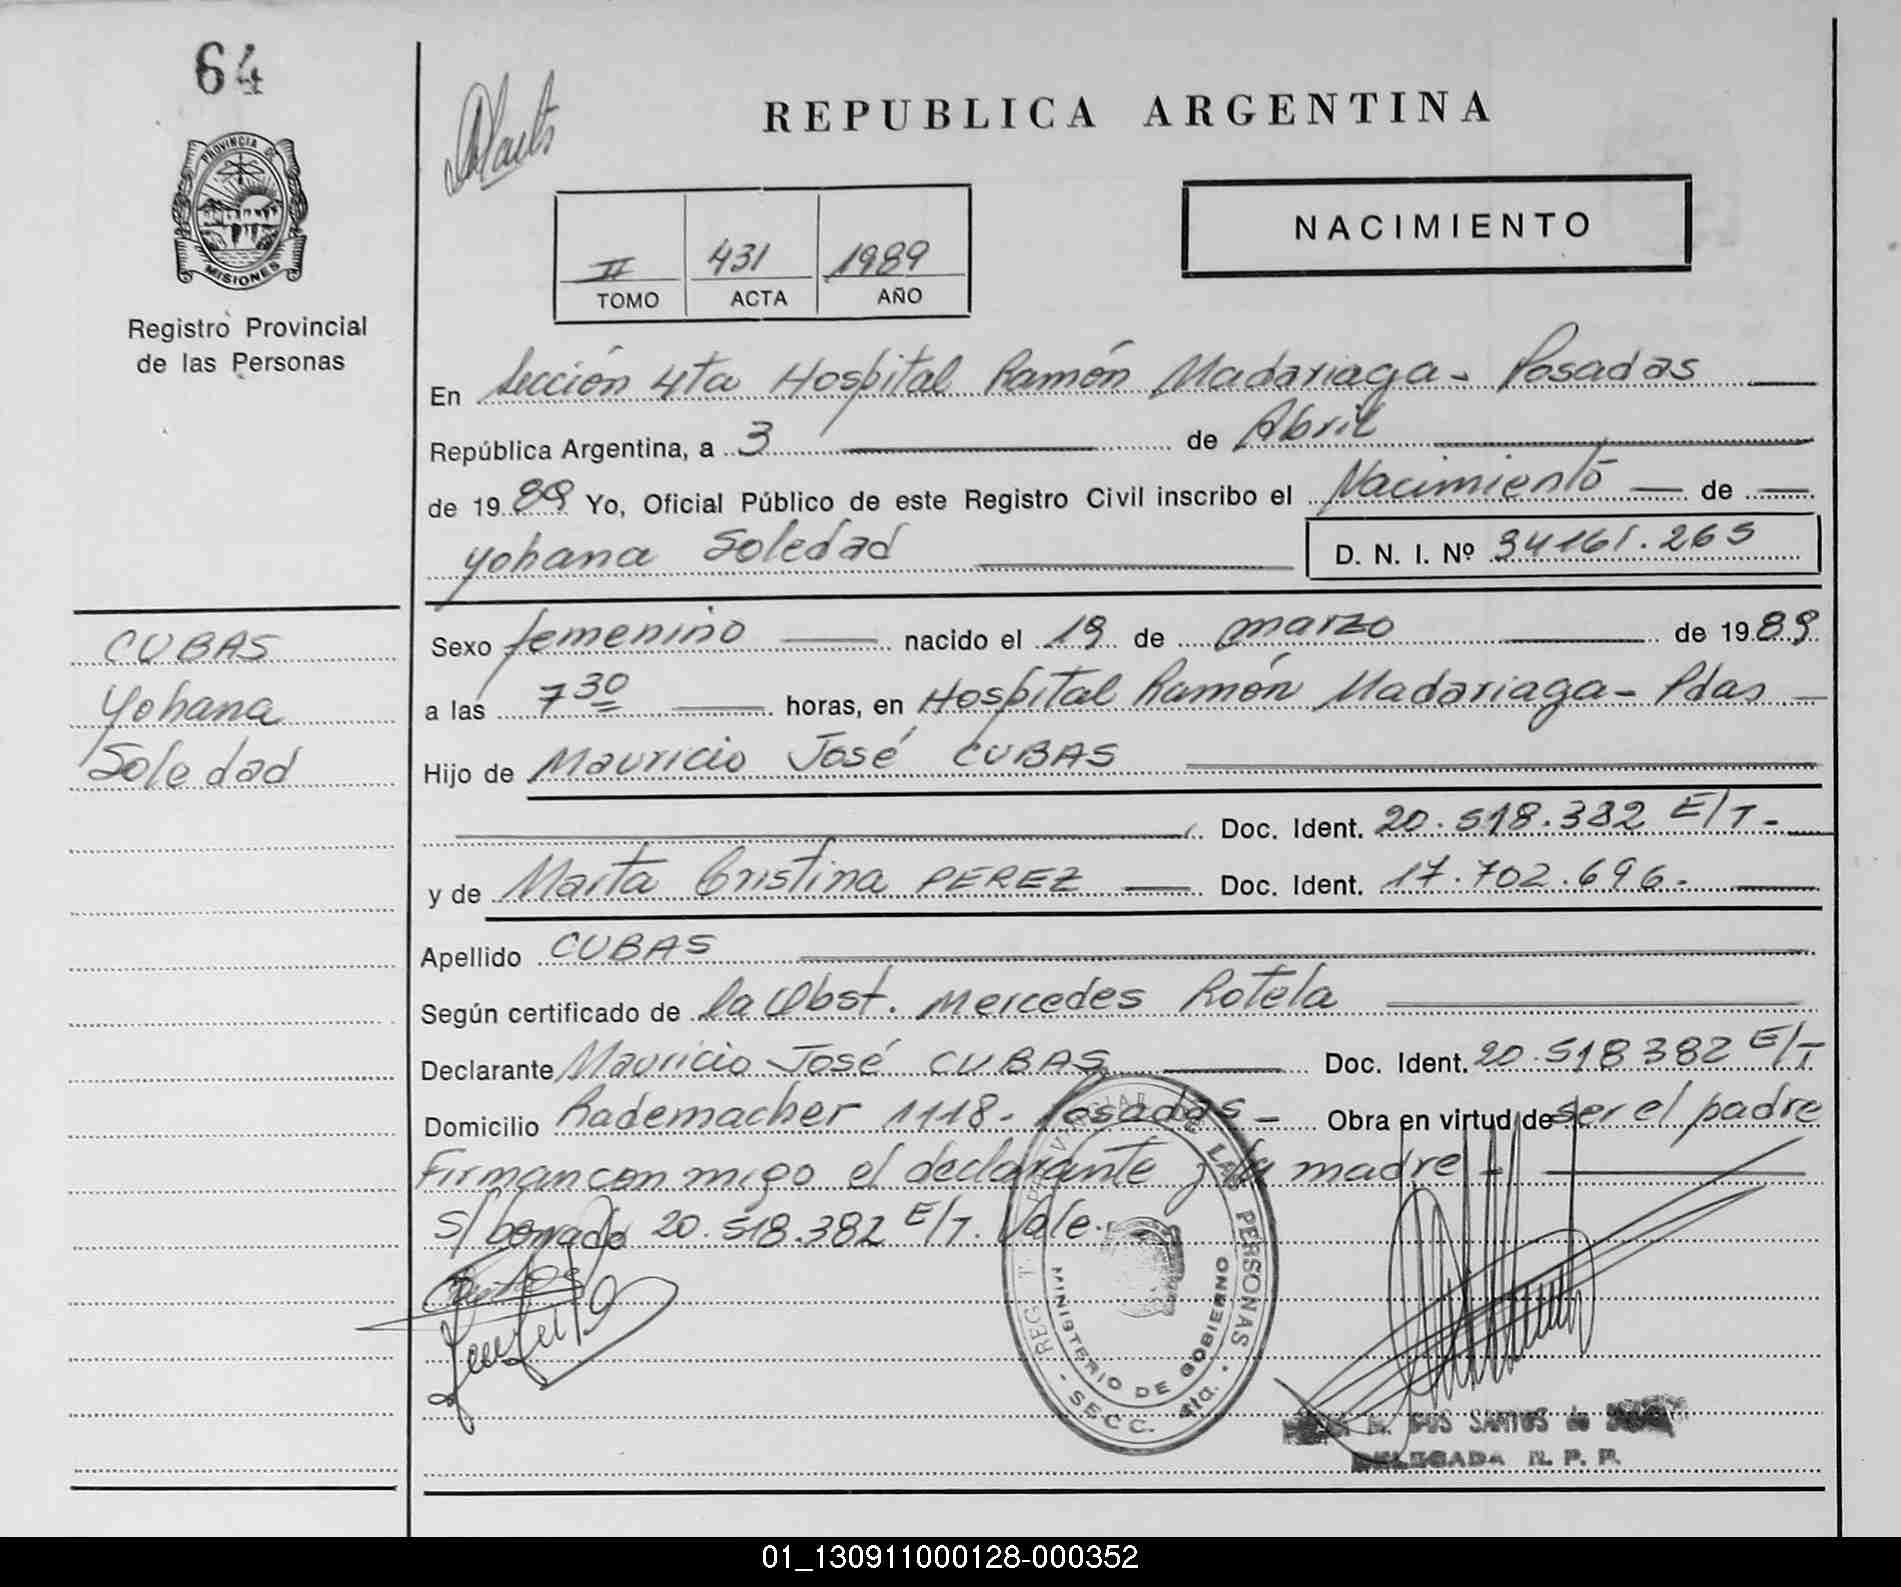 64
PROVINCIA DE
MISIONES
Registro Provincial
de las Personas
REPUBLICA ARGENTINA
NACIMIENTO
II 431 1989
TOMO ACTA AÑO
En Sección 4ta Hospital Ramón Madariaga - Posadas
República Argentina, a 3 de Abril
de 1989 Yo, Oficial Público de este Registro Civil inscribo el Nacimiento de
Yohana Soledad D. N. I. Nº 34161.265
CUBAS
Yohana
Soledad
Sexo femenino nacido el 19 de marzo de 1989
a las 7 30 horas, en Hospital Ramón Madariaga - Pdas
Hijo de Mauricio José CUBAS
Doc. Ident. 20.518.382 E/T.
y de Marta Cristina PEREZ Doc. Ident. 17.702.696.
Apellido CUBAS
Según certificado de la Obst. Mercedes Rotela
Declarante Mauricio José CUBAS Doc. Ident. 20.518382 E/T
Domicilio Rademacher 1118 - Posadas - Obra en virtud de ser el padre
Firman con migo el declarante y la madre -
S/ borrado 20.518.382 E/T. Vale.
REG. PROVINCIAL DE LAS PERSONAS
MINISTERIO DE GOBIERNO
- SECC. 4ta. -
M. DOS SANTOS de
DELEGADA R. P. P.
01_130911000128-000352